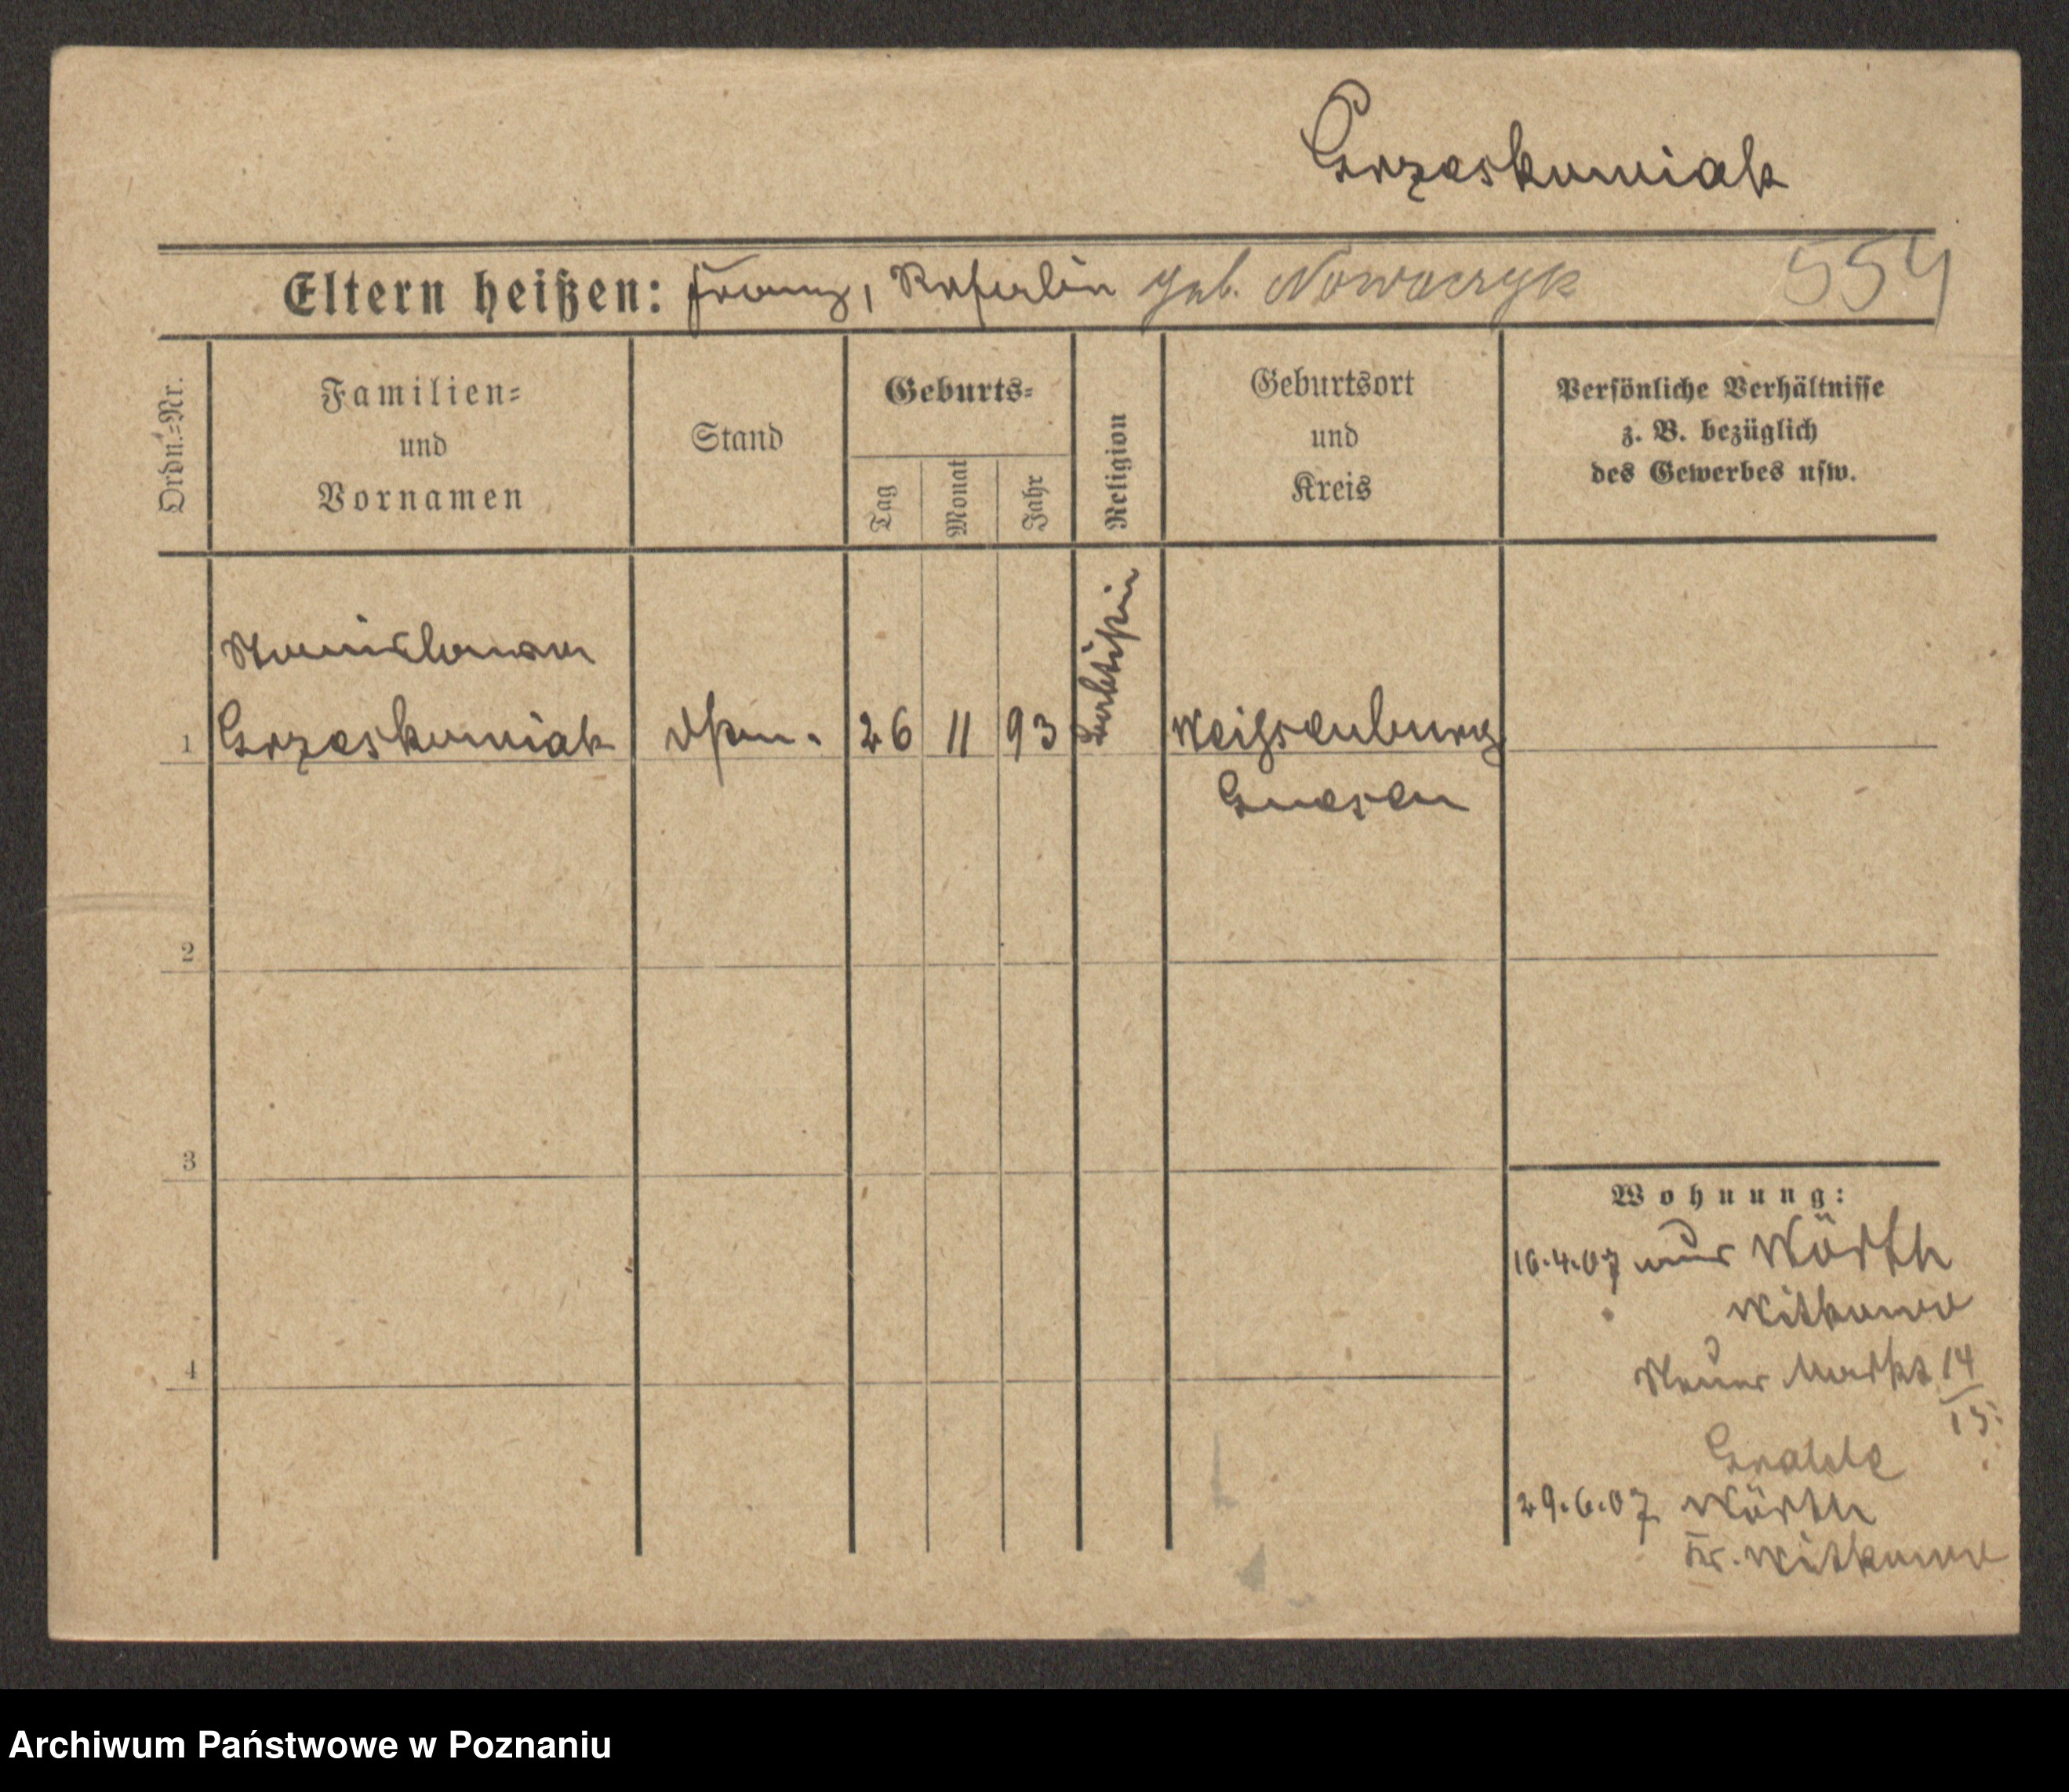 Grzeskowiak
Eltern heißen: Franz, Rosalie geb. Nowaczyk 554
Ordn.-Nr.
Familien-
und
Vornamen
Stand
Geburts-
Tag
Monat
Jahr
Religion
Geburtsort
und
Kreis
Persönliche Verhältnisse
z. B. bezüglich
des Gewerbes usw.
Stanislawa
1 Grzeskowiak 26 11 93 Weissenburg
Gnesen
2
3
4
Wohnung:
16.4.07 aus Wörth
Witkowo
Neuer Markt 14
15
29.6.07 Wörth
Kr. Witkowo
Archiwum Państwowe w Poznaniu